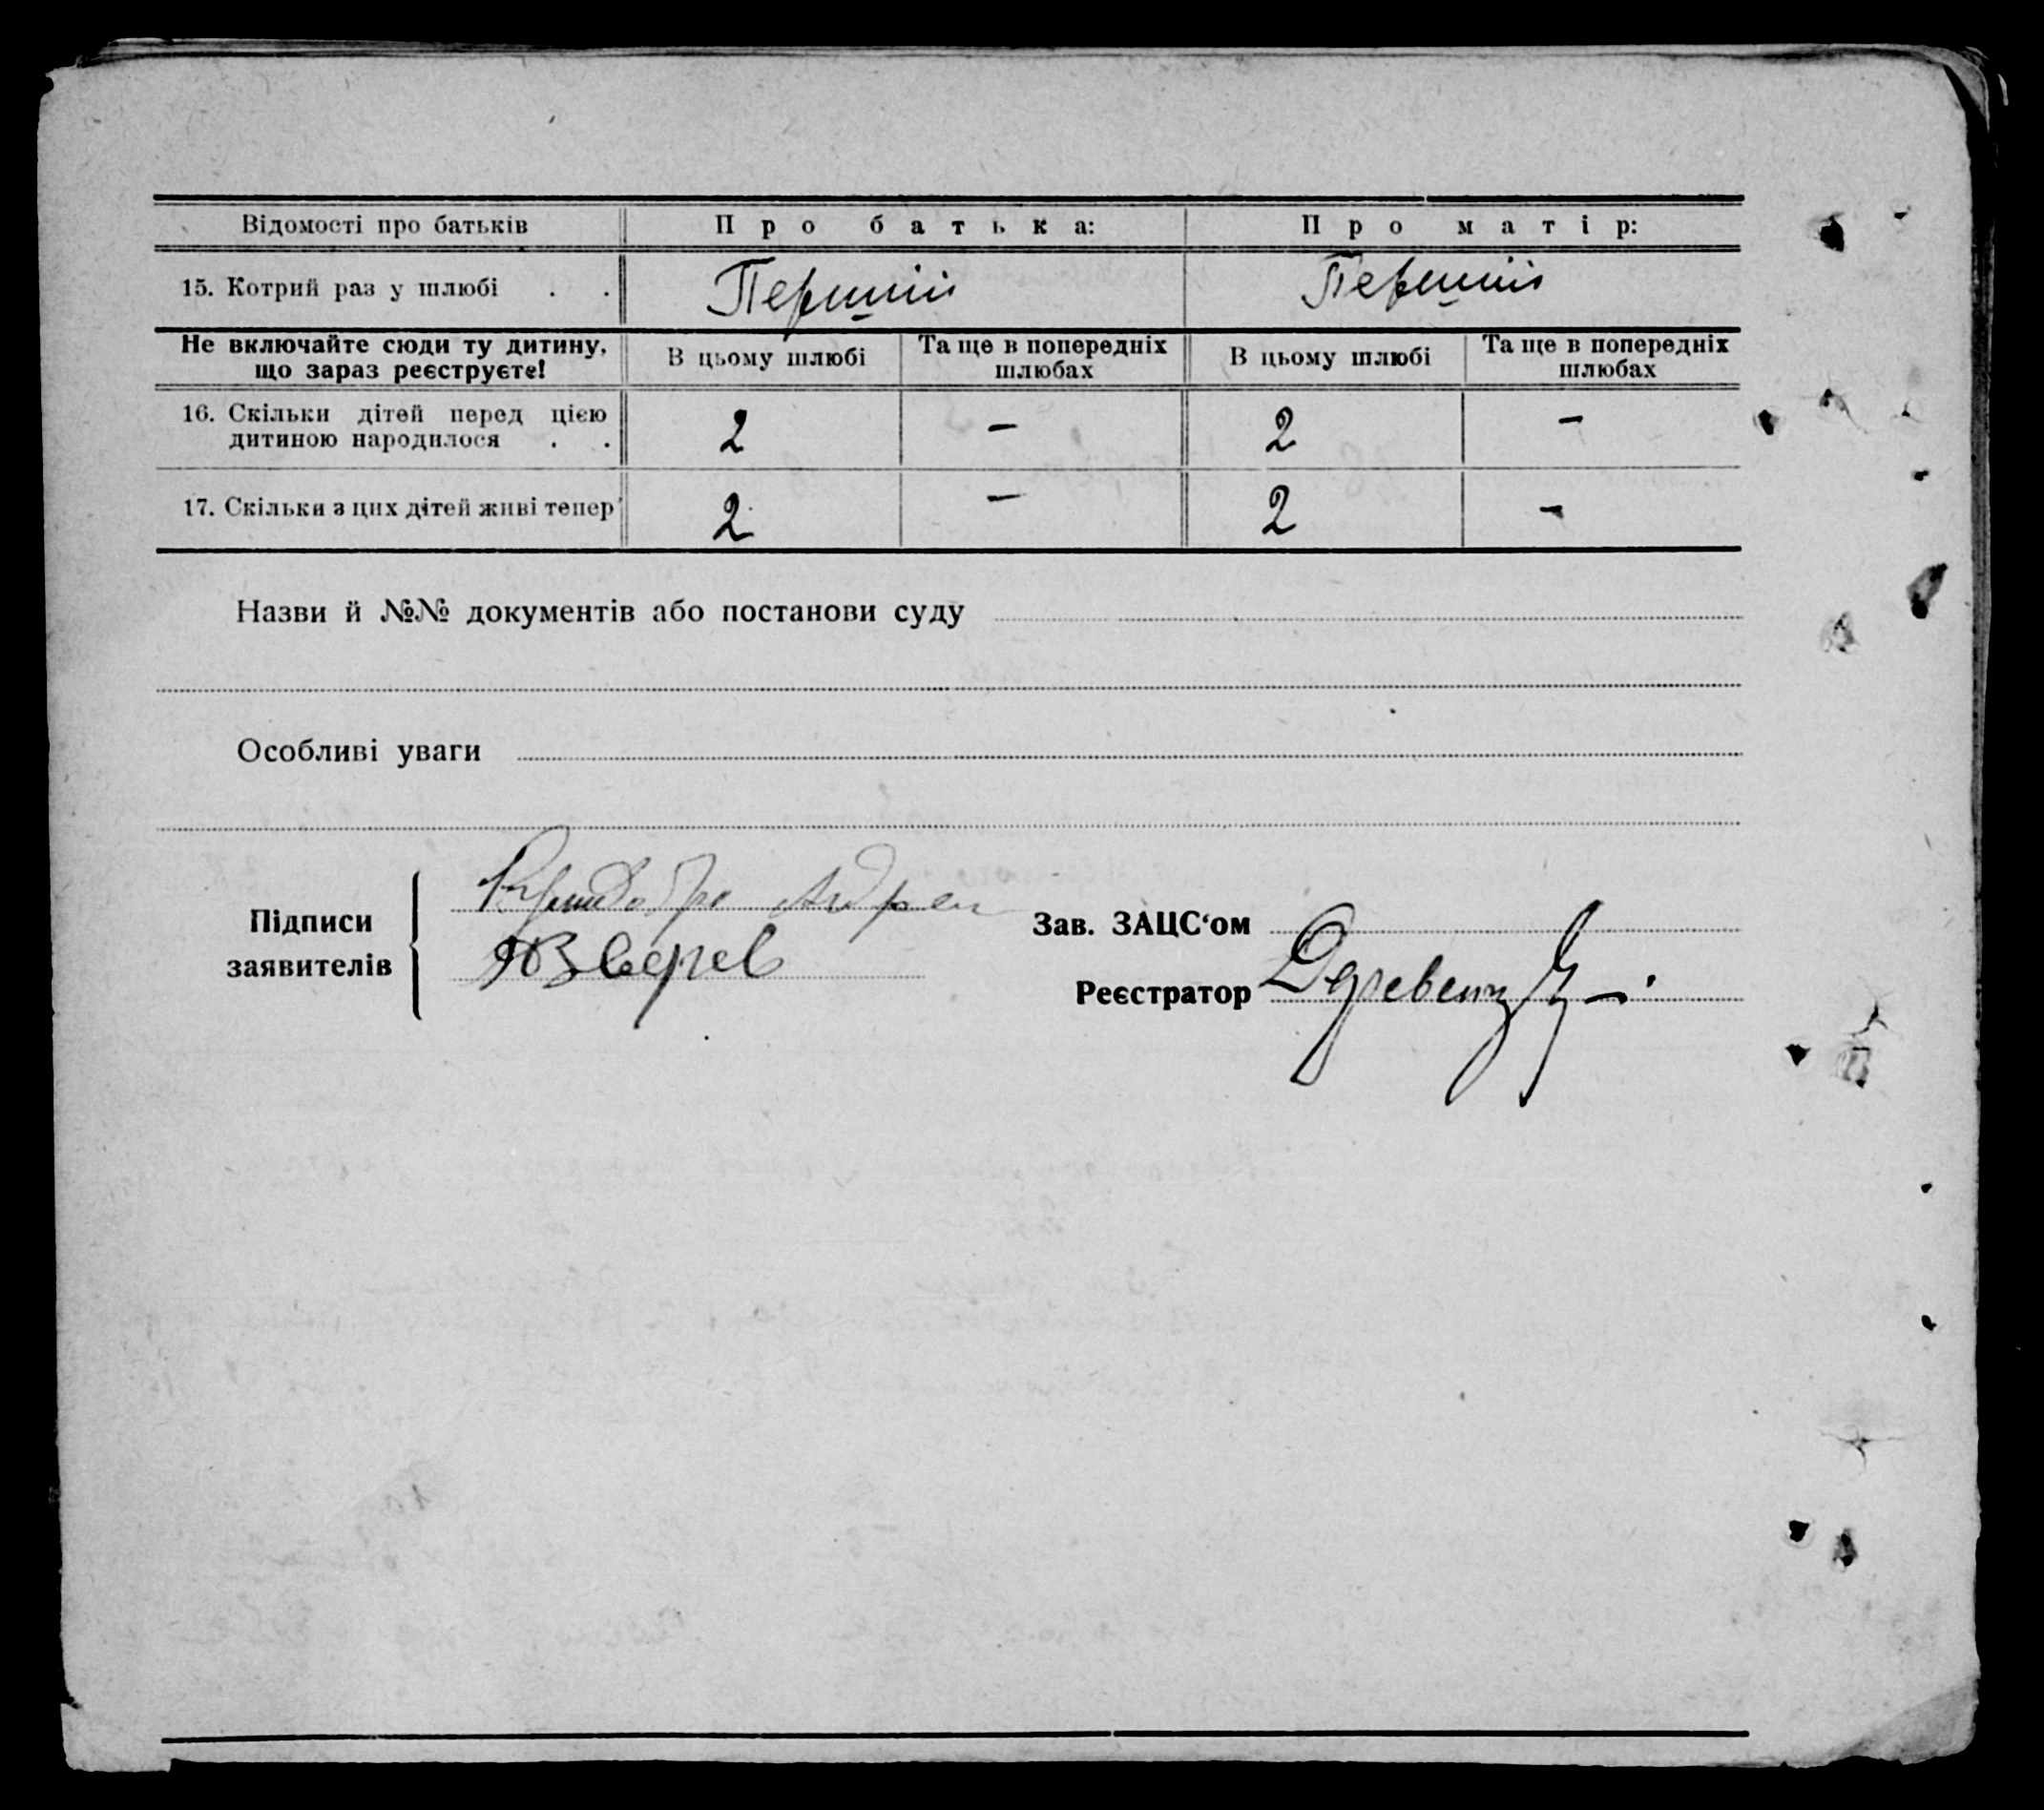 Відомості про батьків Про батька: Про матір:
15. Котрий раз у шлюбі . . Перший Перший
Не включайте сюди ту дитину, що зараз реєструєте! В цьому шлюбі Та ще в попередніх шлюбах В цьому шлюбі Та ще в попередніх шлюбах
16. Скільки дітей перед цією дитиною народилося . . 2 – 2 –
17. Скільки з цих дітей живі тепер 2 – 2 –
Назви й №№ документів або постанови суду
Особливі уваги
Підписи заявителів
Зверев
Зав. ЗАЦС‘ом
Реєстратор